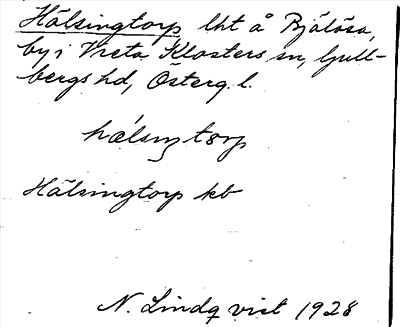 Hälsingtorp lht å Bjälösa,
by i Vreta Klosters sn, Gull-
bergs hd, Österg. l.
hælsıŋtorp
Hälsingtorp kb
N. Lindqvist 1928